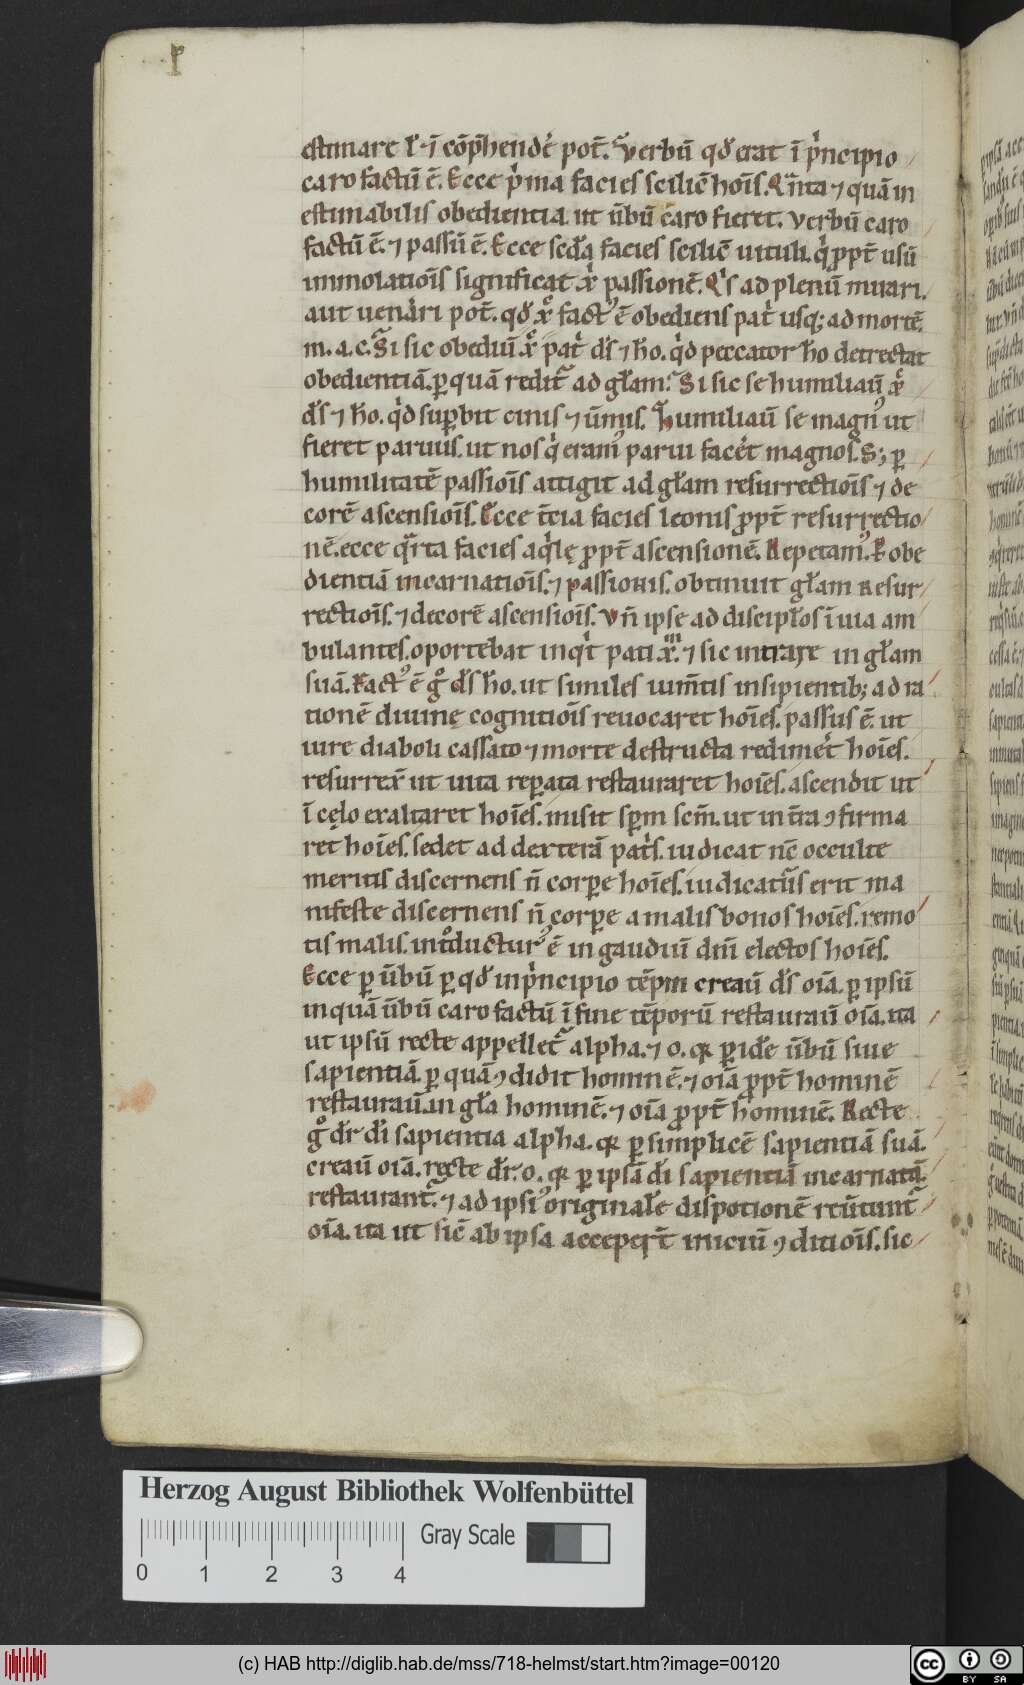 estimare ł ī cōp̄hendẻ pot̄. Verbū qđ erat ī pͥncipio
caro factū ē. Ecce pͥma facies scilic̄ hoīs. Qͣnta ⁊ quā in
estimabilis obedientia. ut ūbū caro fieret. verbū caro
factū ē. ⁊ passū ē. Ecce scđa facies scilic̄ uituli. qͥ ꝓpt̄ usū
immolatiōis significat xͥ passionē. Qͥs ad plenū mirari.
aut uenāri pot̄. qđ xͨ factꝰ ē obediens patͥ usq; ad mortē.
m. a. c. Si sic obediuī xͨ patͥ ds̄ ⁊ ho. qͥd peccator ho detrectat
obedientiā. ꝑ quā redit̄ ad głam. Si sic se humiliaū xͨ
ds̄ ⁊ ho. qͥd suꝑbit cinis ⁊ ūmis. Humiliaū se magnꝰ ut
fieret paruus. ut nos qͥ eramꝰ parui facēt magnos. S; ꝑ
humilitatē passiōis attigit ad głam resurrectiōis ⁊ de
corē ascensiōis. Ecce t̄cia facies leonis ꝓpt̄ resurrectio
nē. ecce qͣrta facies aqͥlę ꝓpt̄ ascensionē. Repetamꝰ. P obe
dientiā incarnatiōis. ⁊ passionis. obtinuit głam resur
rectiōis. ⁊ decorē ascensiōis. Vn̄ ipse ad discipłos ī uia am
bulantes. oportebat inqͥt pati xp̄m. ⁊ sic intrare in głam
suā. Factꝰ ē gͦ ds̄ ho. ut similes ium̄tis insipientib; ad ra
tionē diuinę cognitiōis reuocaret hoīes. passus ē. ut
iure diaboli cassato ⁊ morte destructa redimēt hoīes.
resurrex̄ ut uita reꝑata restauraret hoīes. ascendit ut
ī cęlo exaltaret hoīes. misit sp̄m scm̄. ut in t̄ra ꝯfirma
ret hoīes. sedet ad dexterā patͥs. iudicat nē occulte
meritis discernens n̄ corꝑe hoīes. iudicatͣus erit ma
nifeste discernens n̄ corꝑe a malis bonos hoīes. remo
tis malis. intͦducturꝰ ē in gaudiū dnī electos hoīes.
Ecce ꝑ ūbū ꝑ qđ in pͥncipio tēpm creaū ds̄ oīa. ꝑ ipsū
inquā ūbū caro factū ī fine tēporū restauraū oīa. ita
ut ipsū recte appellet̄ alpha. ⁊ o. qꝛ ꝑ idē ūbū siue
sapientiā. ꝑ quā ꝯdidit hominē. ⁊ oīa ꝓpt̄ hominē
restauraū. in gła hominē. ⁊ oīa ꝓpt̄ hominē. Recte
gͦ dr̄ dī sapientia alpha. qꝛ ꝑ simplicē sapientiā suā.
creaū oīa. recte dr̄. o. qꝛ ꝑ ipsā dī sapientiā incarnatā.
restaurant̄. ⁊ ad ipsiꝰ originałe dispotionē reūtunt̄
oīa. ita ut sic̄ ab ipsa acceper̄t iniciū ꝯditiōis. sic
Herzog August Bibliothek Wolfenbüttel
Gray Scale
0 1 2 3 4
(c) HAB http://diglib.hab.de/mss/718-helmst/start.htm?image=00120
cc BY SA